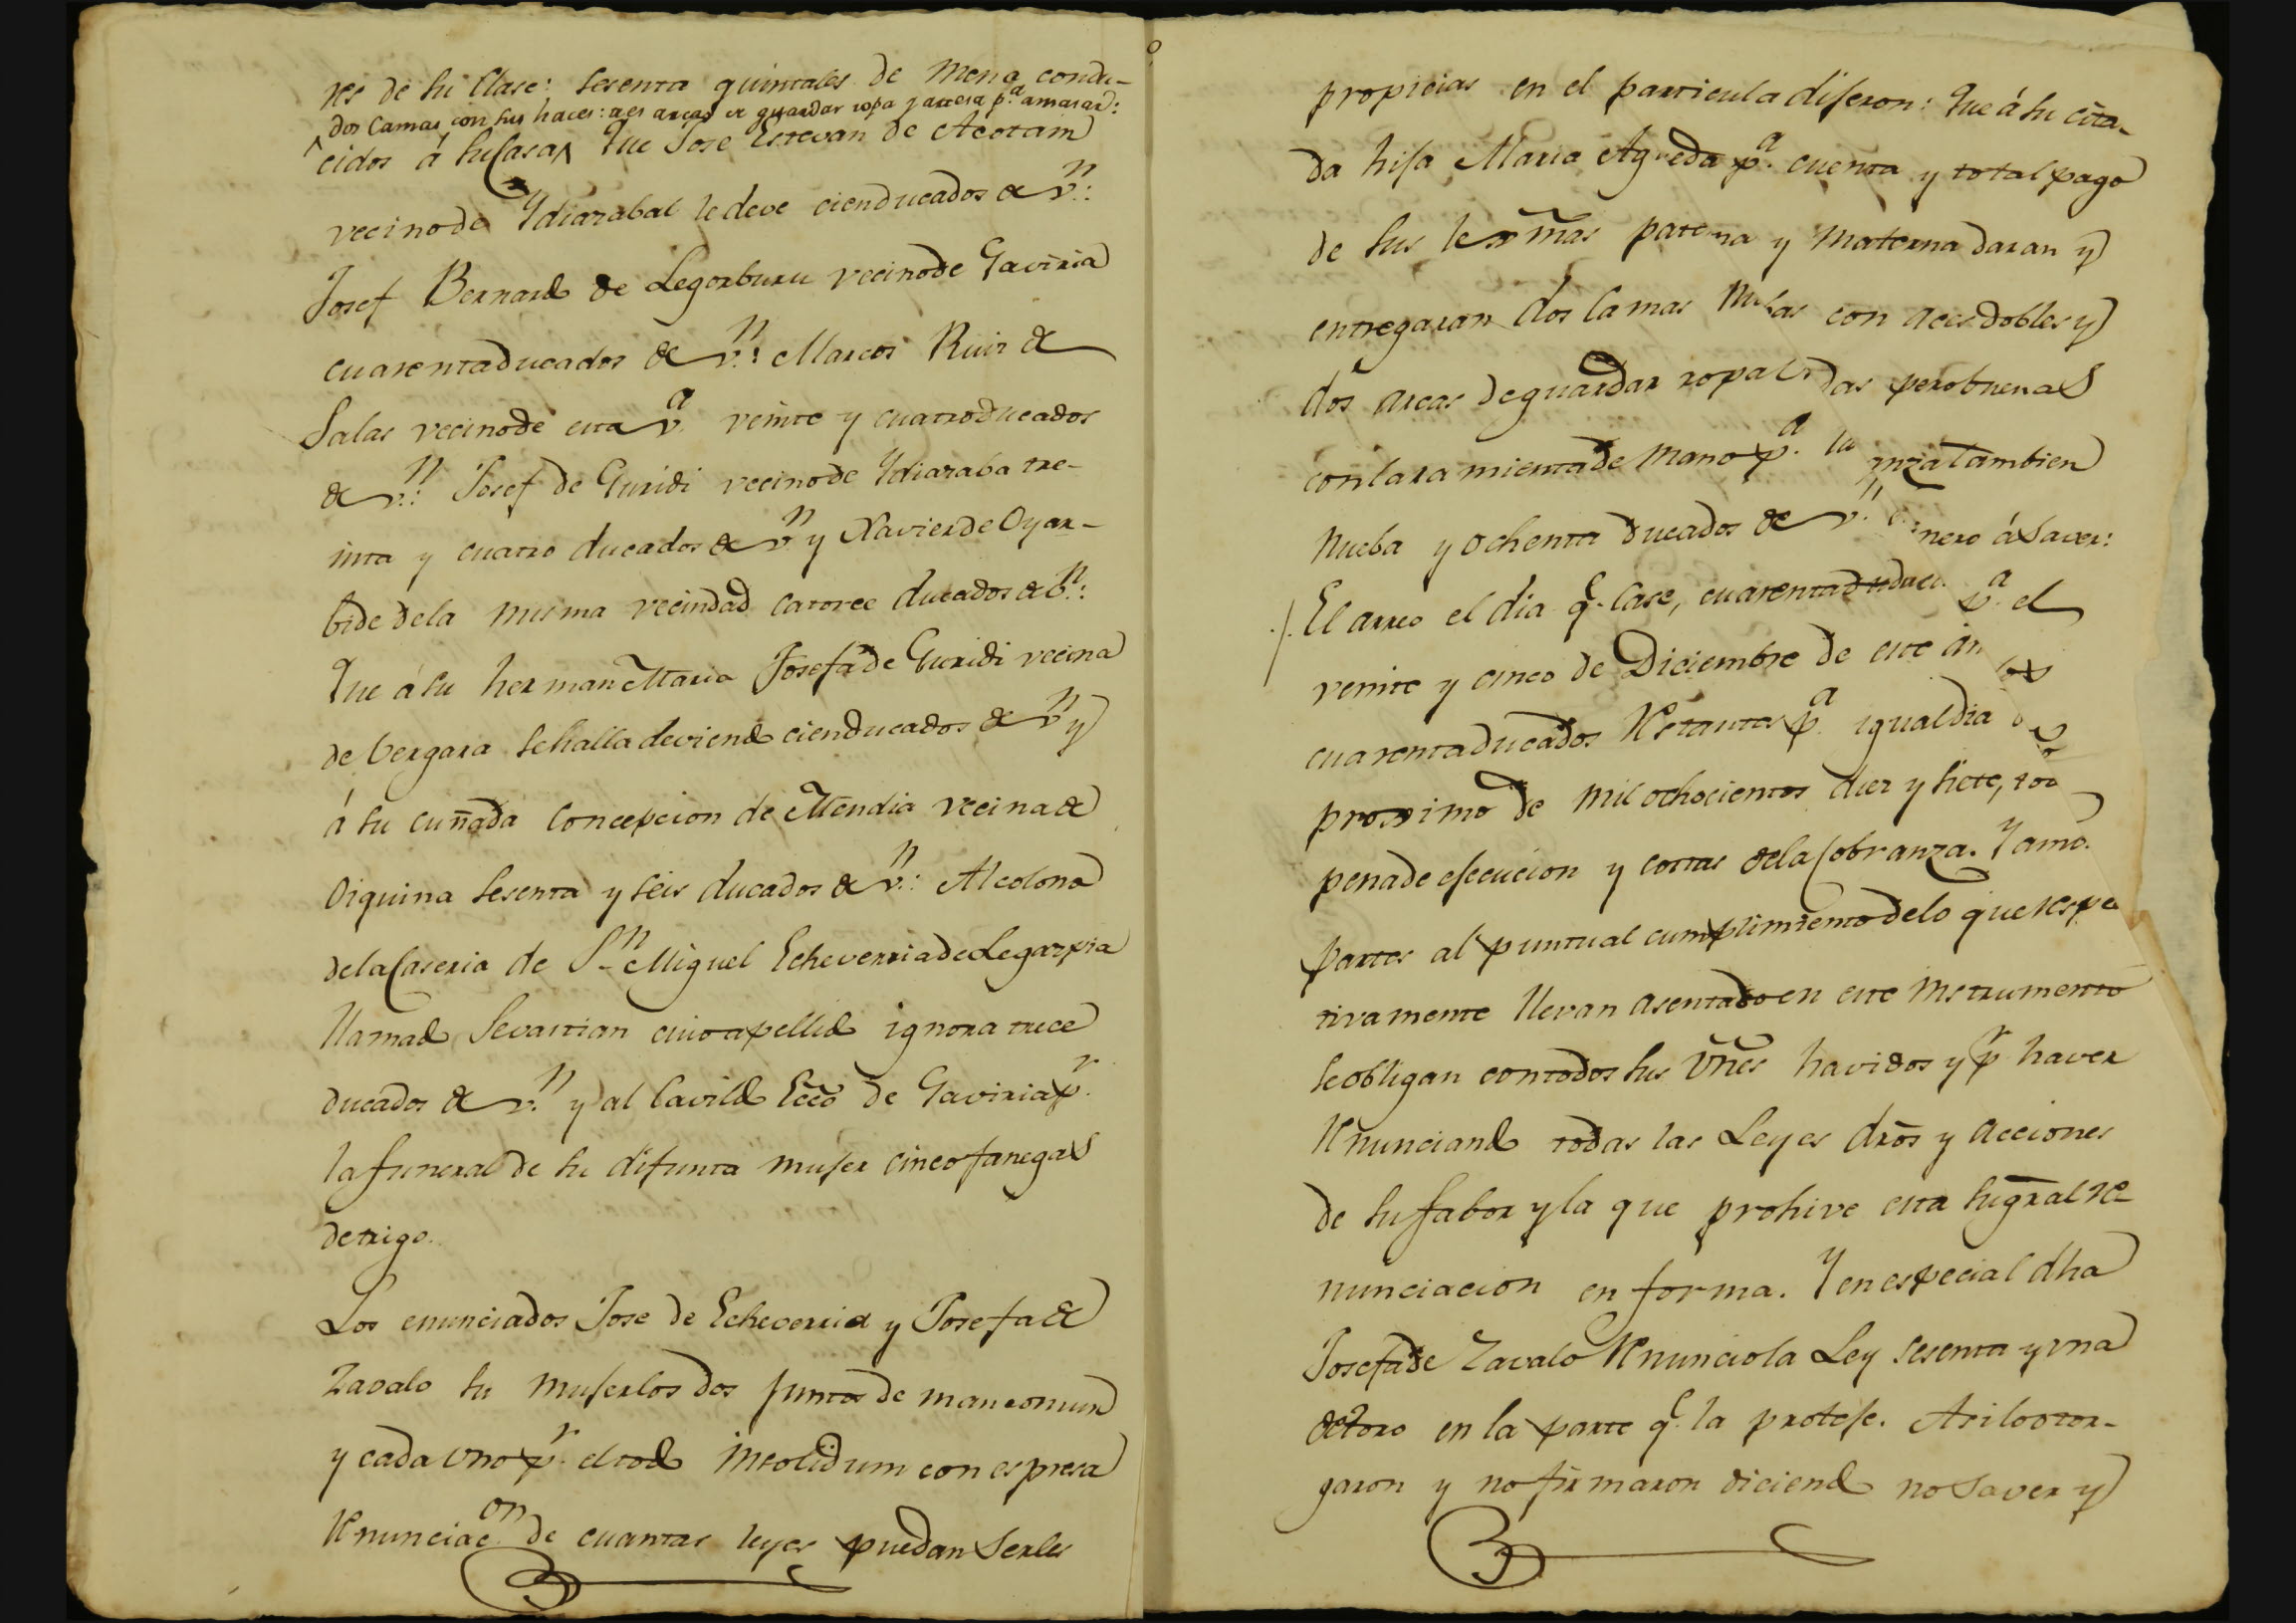 res de su clase: sesenta quintales de mena condu-
dos camas con sus haces: tres arcas de guardar ropa y artesa p.ª amasar:
cidos á su casa, Que Jose Estevan de Aeotain
vecino de Ydiazabal le deve cien ducados de v.n:
Josef Bernardo de Legorburu vecino de Gaviria
cuarenta ducados de v.n: Marcos Ruiz de
Salas vecino de esta v.ª veinte y cuatro ducados
de v.n: Josef de Guridi vecino de Ydiazaba tre-
inta y cuatro ducados de v.n y Xavier de Oyar-
bide de la misma vecindad catorce ducados de v.n:
Que á su herman Maria Josefa de Guridi vecina
de Vergara se halla deviendo cien ducados de v.n y
á su cuñada Concepcion de Mendia vecina de
Oiquina sesenta y seis ducados de v.n: Al colono
de la Caseria de S.n Miguel Echeverria de Legazpia
llamado Sevastian cuio apellido ignora trece
ducados de v.n y al Cavildo Ecco de Gaviria p.r
la funeral de su difunta muger cinco fanegas
de trigo.
Los enunciados Jose de Echeverria y Josefa de
Zavalo su muger los dos juntos de mancomun
y cada uno p.r el todo insolidum con espresa
renunciac.on de cuantas leyes puedan serles
propicias en el particula digeron: Que á su cita-
da hija Maria Agueda p.ª cuenta y total pago
de sus lexmas paterna y materna daran y
entregaran dos camas nuebas con aces dobles y
dos arcas de guardar ropa das pero buenas
con laramienta de mano p.ª la anza tambien
nueba y ochenta ducados de v.n nero á saver:
El arreo el dia q.e case, cuarenta duc p.ª el
veinte y cinco de Diciembre de este añ los
cuarenta ducados restantes p.ª igual dia
proximo de mil ochocientos diez y siete, so
pena de egecucion y costas de la cobranza. Y amo.
partes al puntual cumplimiento de lo que respe
tivamente llevan asentado en este instrumento
se obligan con todos sus vnes havidos y p.r haver
renunciando todas las Leyes dros y acciones
de su fabor y la que prohive esta su gral re
nunciacion en forma. Y en especial dha
Josefa de Zavalo renuncio la Ley sesenta y una
de toro en la parte q.e la protege. Asi lo otor-
garon y no firmaron diciendo no saver y